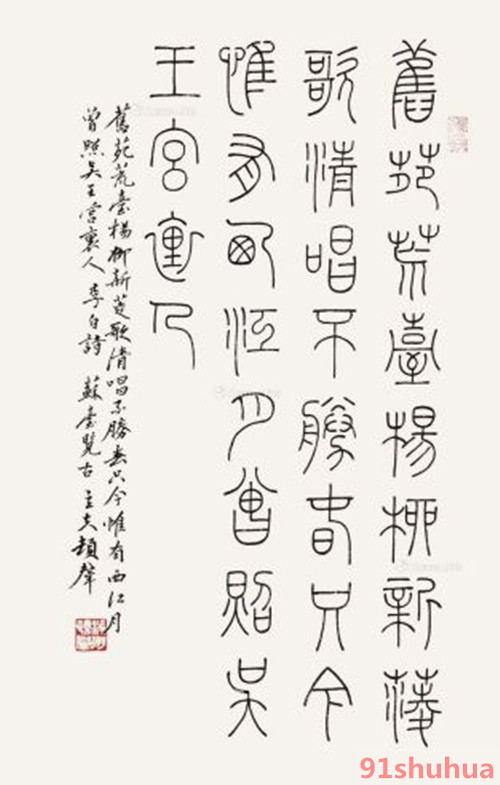 舊苑荒臺楊柳新菱
歌清唱不勝春只今
惟有西江月曾照吳
王宮裏人
舊苑荒臺楊柳新菱歌清唱不勝春只今惟有西江月
曾照吳王宮裏人 李白詩 蘇臺覽古
91shuhua